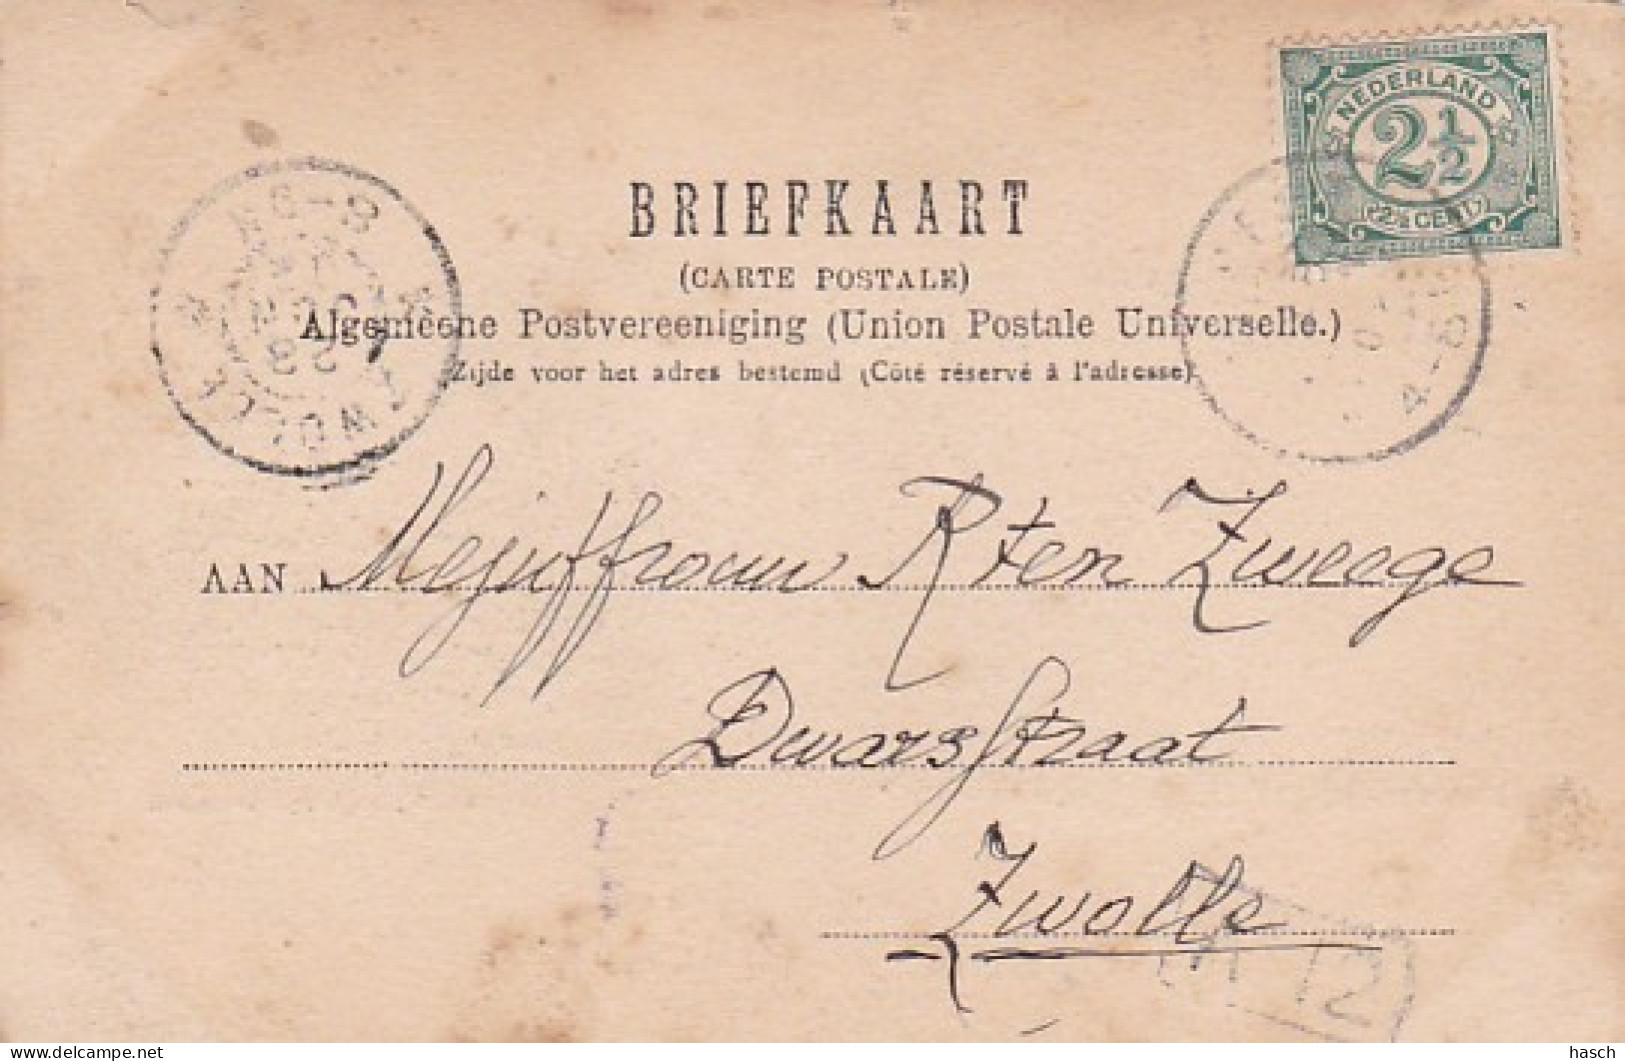 NEDERLAND
2 1/2
2½ CENT
BRIEFKAART
(CARTE POSTALE)
Algemeene Postvereeniging (Union Postale Universelle.)
Zijde voor het adres bestemd (Côté réservé à l'adresse)
ZWOLLE
4-5
AAN Mejuffrouw R ten Zweege
Dwarsstraat
Zwolle
12
hasch